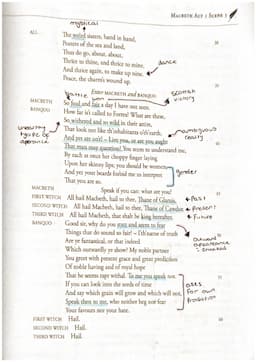 MACBETH ACT 1 SCENE 3
mystical
ALL
The weird sisters, hand in hand,
Posters of the sea and land,
Thus do go, about, about,
Thrice to thine, and thrice to mine,
And thrice again, to make up nine.
dance
Peace, the charm's wound up.
Enter MACBETH and BANQUO.
battle
scottish victory
MACBETH So foul and fair a day I have not seen.
BANQUO How far is't called to Forres? What are these,
So withered and so wild in their attire,
That look not like th'inhabitants o'th'earth,
ambiguous
And yet are on't? – Live you, or are you aught
That man may question? You seem to understand me,
By each at once her choppy finger laying
Upon her skinny lips; you should be women,
gender
And yet your beards forbid me to interpret
That you are so.
MACBETH Speak if you can: what are you?
FIRST WITCH All hail Macbeth, hail to thee, Thane of Glamis.
Past
SECOND WITCH All hail Macbeth, hail to thee, Thane of Cawdor.
Present
THIRD WITCH All hail Macbeth, that shalt be king hereafter.
Future
BANQUO Good sir, why do you start and seem to fear
Things that do sound so fair? – I'th'name of truth
Are ye fantastical, or that indeed
Which outwardly ye show? My noble partner
You greet with present grace and great prediction
Of noble having and of royal hope
That he seems rapt withal. To me you speak not.
If you can look into the seeds of time
And say which grain will grow and which will not,
asks for own prediction
Speak then to me, who neither beg nor fear
Your favours nor your hate.
FIRST WITCH Hail.
SECOND WITCH Hail.
THIRD WITCH Hail.